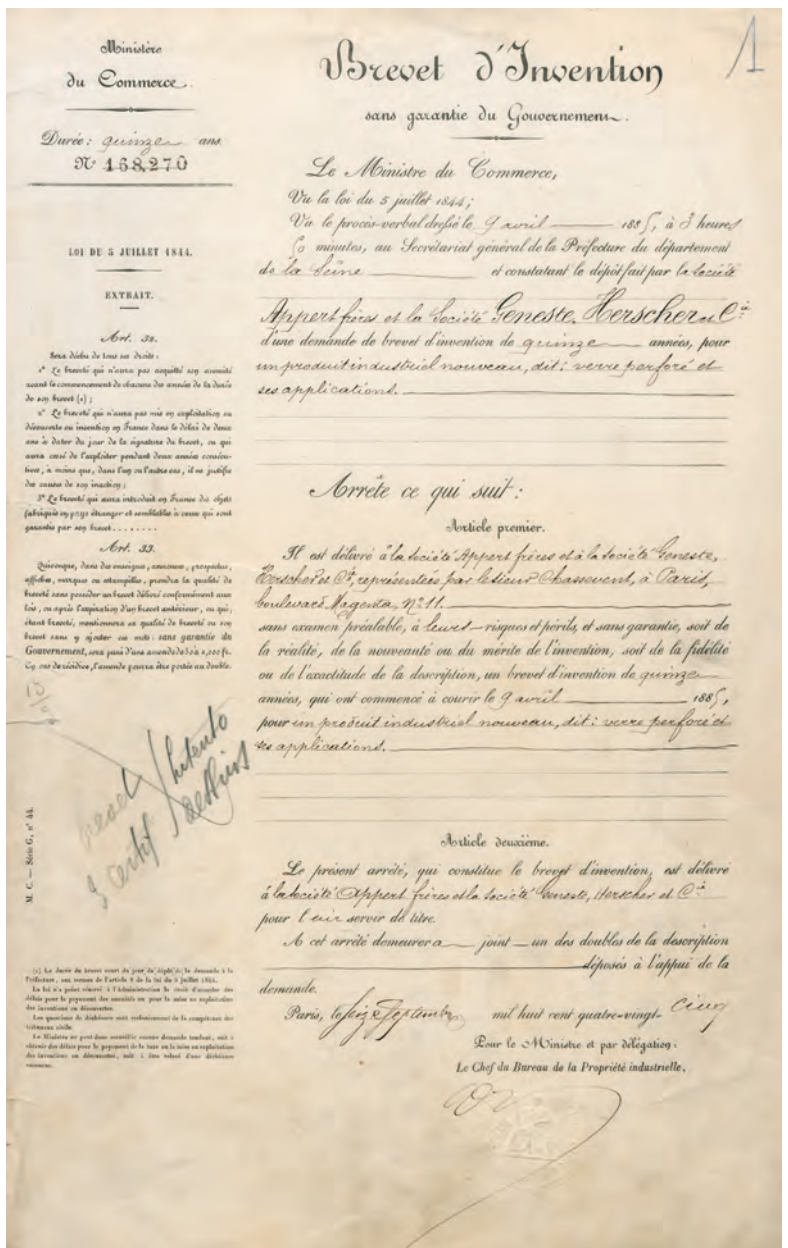 Ministère
du Commerce.
Durée : quinze ans.
N° 168,270
LOI DU 5 JUILLET 1844.
EXTRAIT.
Art. 32.
Sera déchu de tous ses droits :
1° Le breveté qui n'aura pas acquitté son annuité
avant le commencement de chacune des années de la durée
de son brevet (1) ;
2° Le breveté qui n'aura pas mis en exploitation sa
découverte ou invention en France dans le délai de deux
ans à dater du jour de la signature du brevet, ou qui
aura cessé de l'exploiter pendant deux années consécu-
tives, à moins que, dans l'un ou l'autre cas, il ne justifie
des causes de son inaction ;
3° Le breveté qui aura introduit en France des objets
fabriqués en pays étranger et semblables à ceux qui sont
garantis par son brevet........
Art. 33.
Quiconque, dans des enseignes, annonces, prospectus,
affiches, marques ou estampilles, prendra la qualité de
breveté sans posséder un brevet délivré conformément aux
lois, ou après l'expiration d'un brevet antérieur, ou qui,
étant breveté, mentionnera sa qualité de breveté ou son
brevet sans y ajouter ces mots : sans garantie du
Gouvernement, sera puni d'une amende de 50 à 1,000 fr.
En cas de récidive, l'amende pourra être portée au double.
M. C. — Série G, n° 44.
(1) La durée du brevet court du jour du dépôt de la demande à la
Préfecture, aux termes de l'article 8 de la loi du 5 juillet 1844.
La loi n'a point réservé à l'Administration le droit d'accorder des
délais pour le payement des annuités ou pour la mise en exploitation
des inventions ou découvertes.
Les questions de déchéance sont exclusivement de la compétence des
tribunaux civils.
Le Ministre ne peut donc accueillir aucune demande tendant, soit à
obtenir des délais pour le payement de la taxe ou la mise en exploitation
des inventions ou découvertes, soit à être relevé d'une déchéance
encourue.
1
Brevet d'Invention
sans garantie du Gouvernement.
Le Ministre du Commerce,
Vu la loi du 5 juillet 1844 ;
Vu le procès-verbal dressé le 9 avril 1885, à 3 heures
50 minutes, au Secrétariat général de la Préfecture du département
de la Seine et constatant le dépôt fait par la Société
Appert frères et la Société Geneste, Herscher et Cie
d'une demande de brevet d'invention de quinze années, pour
un produit industriel nouveau, dit : verre perforé et
ses applications.
Arrête ce qui suit :
Article premier.
Il est délivré à la Société Appert frères et à la Société Geneste,
Herscher et Cie, représentées par le sieur Chassevent, à Paris,
boulevard Magenta, N° 11.
sans examen préalable, à leurs risques et périls, et sans garantie, soit de
la réalité, de la nouveauté ou du mérite de l'invention, soit de la fidélité
ou de l'exactitude de la description, un brevet d'invention de quinze
années, qui ont commencé à courir le 9 avril 1885,
pour un produit industriel nouveau, dit : verre perforé et
ses applications.
Article deuxième.
Le présent arrêté, qui constitue le brevet d'invention, est délivré
à la Société Appert frères et la Société Geneste, Herscher et Cie
pour leur servir de titre.
A cet arrêté demeurera joint un des doubles de la description
déposés à l'appui de la
demande.
Paris, le seize Septembre mil huit cent quatre-vingt-cinq
Pour le Ministre et par délégation :
Le Chef du Bureau de la Propriété industrielle,